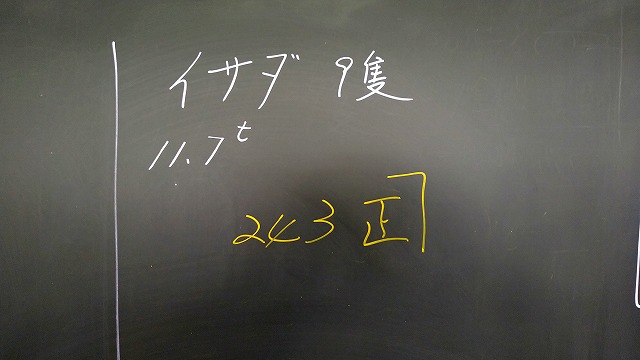 イサダ 9隻
11.7t
243 正